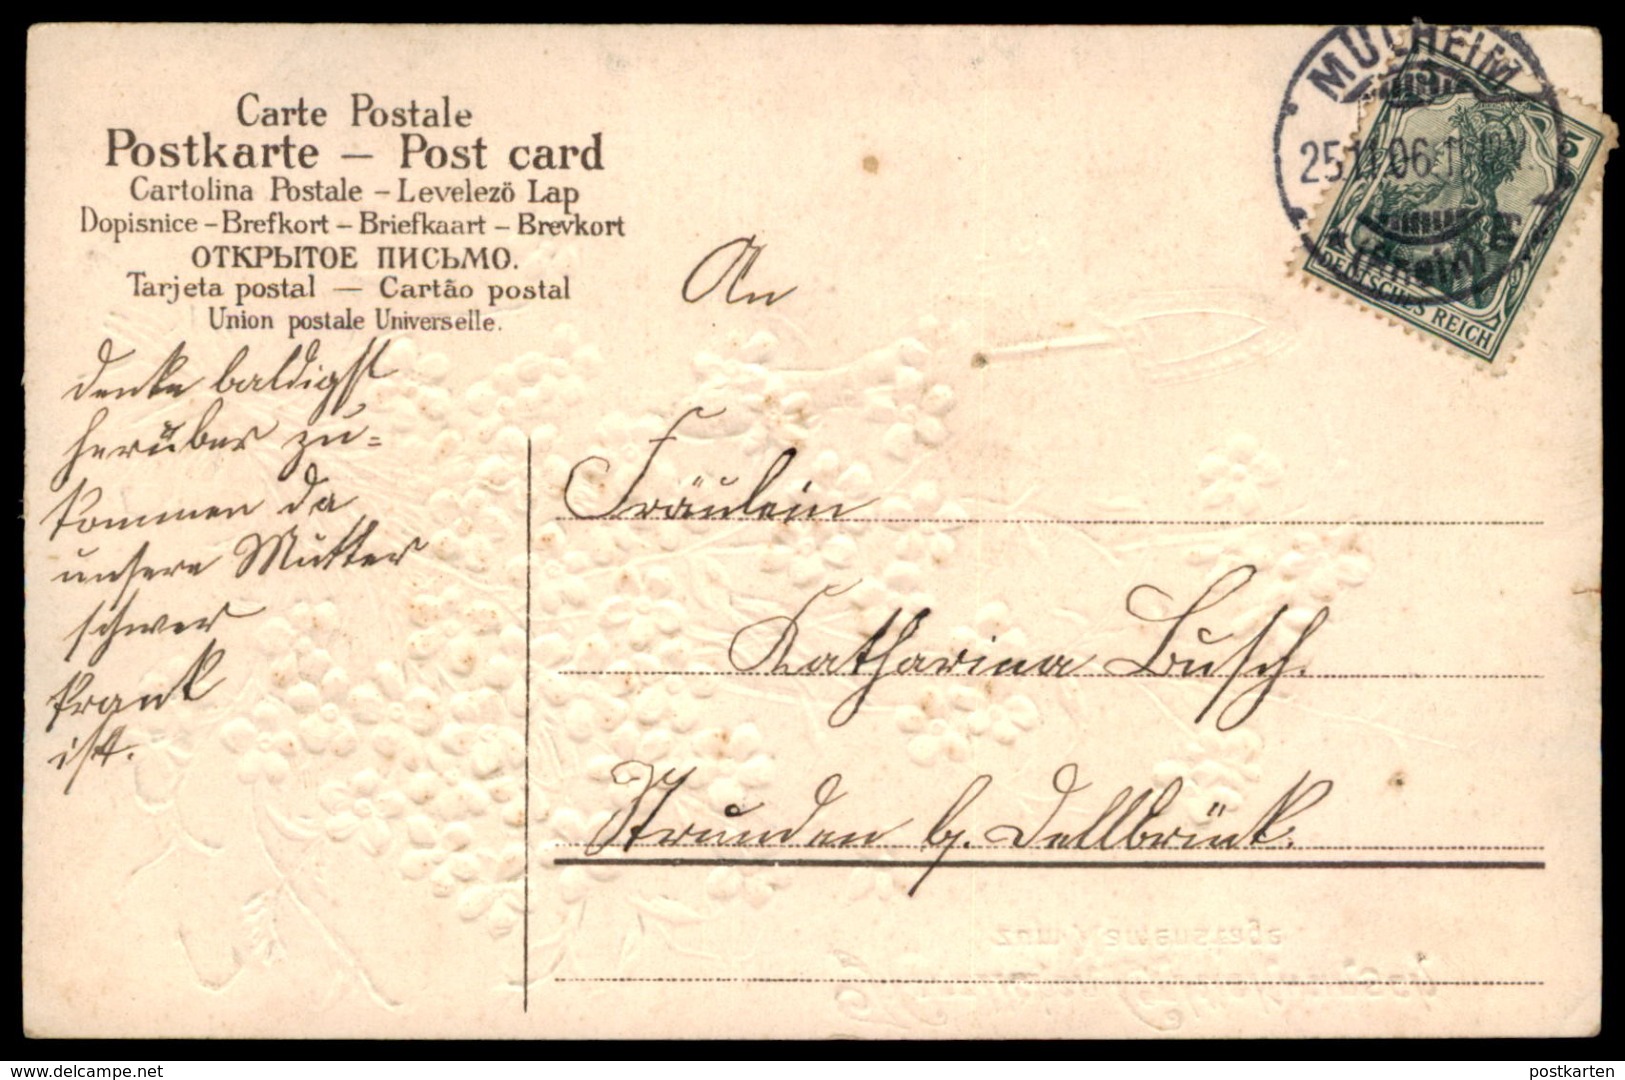 Carte Postale
Postkarte – Post card
Cartolina Postale – Levelezö Lap
Dopisnice – Brefkort – Briefkaart – Brevkort
ОТКРЫТОЕ ПИСЬМО.
Tarjeta postal — Cartão postal
Union postale Universelle.
MÜLHEIM
25.11.06.11-12V.
* (Rhein)
5
DEUTSCHES REICH
An
denke baldigst
herüber zu=
kommen da
unsere Mutter
schwer
krank
ist.
Fräulein
Katharina Busch.
Strunden b. Dellbrück.
zum Namenstage
Glückwunsch
www.delcampe.net
postkarten